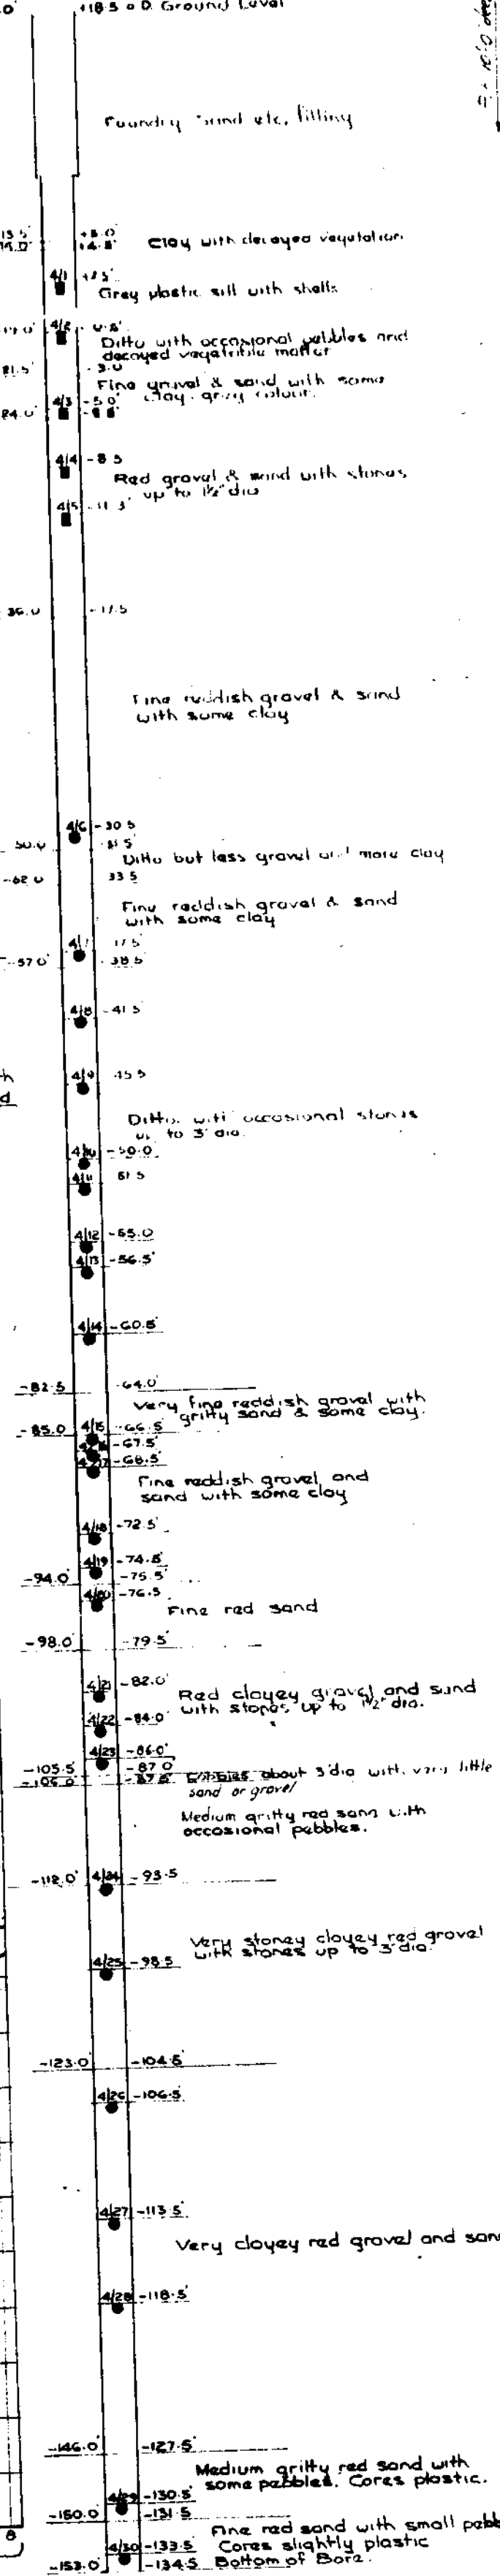 +18.5 O.D. Ground Level
Foundry sand etc, filling
13.5' +5.0'
Clay with decayed vegetation
4/1
Grey plastic silt with shells
4/2
Ditto with occasional pebbles and
decayed vegetable matter
21.5' -3.0
Fine gravel & sand with some
clay, grey colour.
24.0' 4/3 -5.0'
4/4 -8.5
Red gravel & sand with stones
up to 1½" dia
4/5 -11.3'
36.0 -17.5
Fine reddish gravel & sand
with some clay
4/6 -30.5
50.0 31.5'
Ditto but less gravel and more clay
-52.0 33.5
Fine reddish gravel & sand
with some clay
4/7
-57.0' 38.5
4/8 -41.5'
4/9
Ditto with occasional stones
up to 3" dia.
4/10 -50.0
4/11 51.5
4/12 -55.0
4/13 -56.5'
4/14 -60.5'
-82.5 -64.0'
Very fine reddish gravel with
gritty sand & some clay.
-85.0 4/15 -66.5'
4/16 -67.5'
4/17 -68.5'
Fine reddish gravel and
sand with some clay
4/18 -72.5'
4/19 -74.5'
-94.0' -75.5'
4/20 -76.5
Fine red sand
-98.0' -79.5'
4/21 -82.0'
Red clayey gravel and sand
with stones up to 1½" dia.
4/22 -84.0'
4/23 -86.0'
-105.5 -87.0'
-106.0' -87.5' Cobbles about 3" dia with very little
sand or gravel
Medium gritty red sand with
occasional pebbles.
-112.0' 4/24 -93.5
Very stoney clayey red gravel
with stones up to 3" dia.
4/25 -98.5
-123.0' -104.5'
4/26 -106.5'
4/27 -113.5'
Very clayey red gravel and san
4/28 -118.5'
-146.0' -127.5'
Medium gritty red sand with
some pebbles. Cores plastic.
4/29 -130.5'
-150.0 -131.5
Fine red sand with small pebb
4/30 -133.5' Cores slightly plastic
-153.0' -134.5 Bottom of Bore.
8